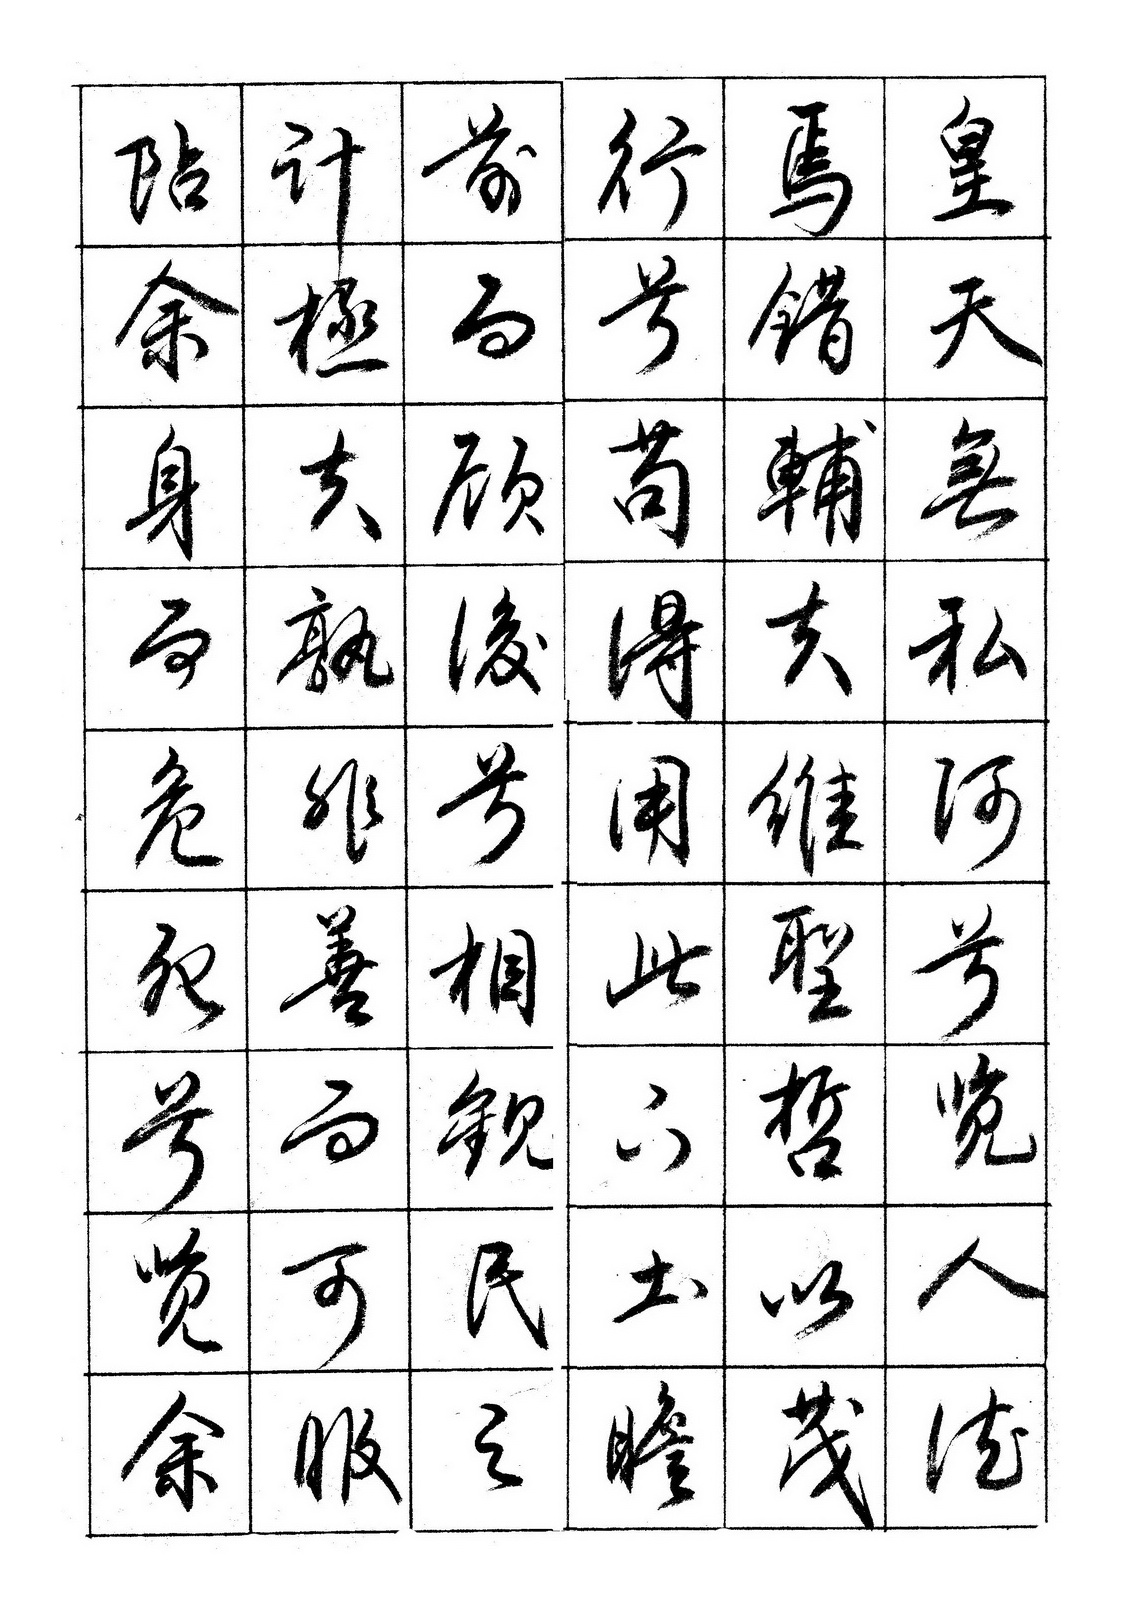 皇天無私阿兮览人德
焉錯輔夫維聖哲以茂
行兮苟得用此下土瞻
前而顾後兮相觀民之
計極夫孰非善而可服
阽余身而危死兮览余